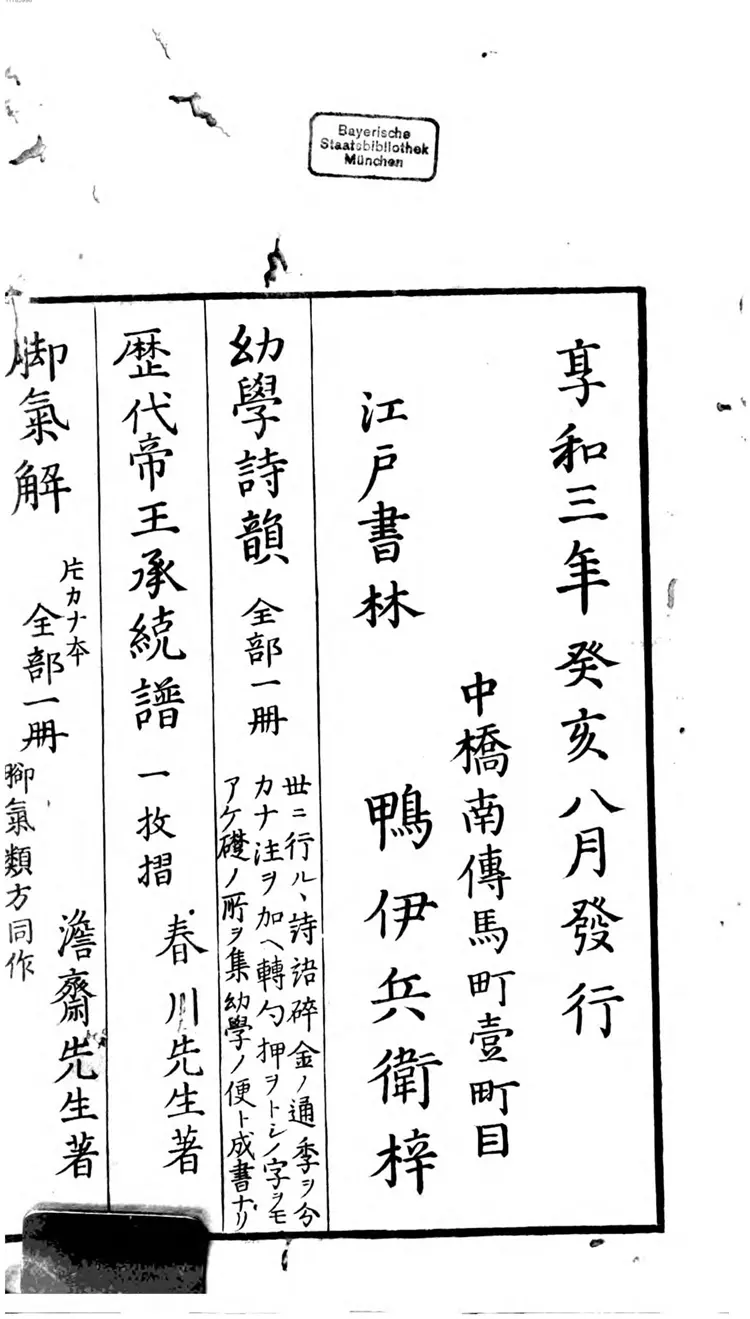 Bayerische
Staatsbibliothek
München
享和三年癸亥八月發行
中橋南傳馬町壹町目
江戸書林 鴨伊兵衛梓
幼學詩韻 全部一册
世ニ行ルヽ詩語碎金ノ通季ヲ分
カナ注ヲ加ヘ轉勺押ヲトシノ字ヲモ
アケ礎ノ所ヲ集幼學ノ便ト成書ナリ
歷代帝王承統譜 一枚摺 春川先生著
脚氣解 片カナ本 全部一册 澹齋先生著
腳氣類方同作